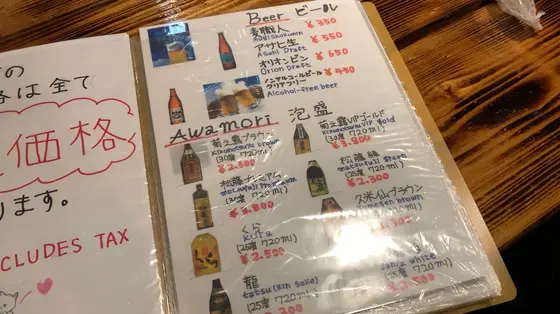 の
は全て
価格
ります。
CLUDES TAX
Beer ビール
麦職人 ¥350
Mugishokunin
アサヒ生 ¥550
Asahi Draft
オリオンビン ¥650
Orion Draft
ノンアルコールビール ¥450
クリアフリー
Alcohol-free beer
Awamori 泡盛
菊之露ブラウン
Kikunotsuyu brown
(30度 720ml)
¥2.500
松藤プレミアム
matsufuji Premium
(30度 720ml)
くら
Kura
(25度 720ml)
¥2.500
龍
tatsu (Kin Sake)
(25度 720ml)
300
菊之露VIPゴールド
Kikunotsuyu VIP gold
(30度 720ml)
¥3.800
松藤
(25度 720ml)
久米仙ブラウン
brown
(25度 720ml)
white
(25度 720ml)
¥2.500